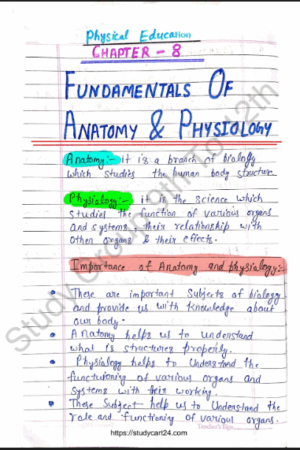 Physical Education
CHAPTER - 8
FUNDAMENTALS OF
ANATOMY & PHYSIOLOGY
Anatomy :- it is a branch of biology
which studies the human body structure
Physiology :- it is the science which
studies the function of various organs
and systems their relationship with
other organs & their effects.
Importance of Anatomy and physiology :-
These are important subjects of biology
and provide us with knowledge about
our body.
Anatomy helps us to understand
what is structures properly.
Physiology helps to understand the
functioning of various organs and
systems with their working.
These subject help us to understand the
role and functioning of various organs.
Teacher's Sign
https://studycart24.com
Study Group 9th To 12th